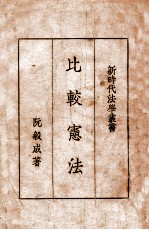 新時代法學叢書
比較憲法
阮毅成著